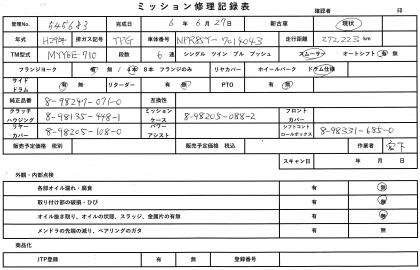 ミッション修理記録表
確認者 印
管理No. 545683 完成日 6年 6月 27日 新古車 現状
年式 H29年 排ガス記号 TPG 車体番号 NPR85Y-7014043 走行距離 272,223 km
TM型式 MYY6E-710 段数 6速 シングル ツイン プル プッシュ スムーサー オートシフト 有 無
フランジヨーク 有 無 / 4本 8本 フランジのみ リヤカバー ホイールパーク ドラム仕様
サイドドラム 有 無 リターダー 有 無 PTO 有 無
純正品番 8-98247-071-0 互換性
クラッチハウジング 8-98135-448-1 ミッションケース 8-98205-088-2 フロントカバー
リヤーカバー 8-98205-108-0 パワーアシスト シフトコントロールボックス 8-98331-685-0
販売予定価格 税別 販売予定価格 税込 作業者 宮下
スキャン日 年 月 日
外観・内部点検
各部オイル漏れ・腐食 有 無
取り付け部の破損・ひび 有 無
オイル抜き取り、オイルの状態、スラッジ、金属片の有無 有 無
メンドラの先端の減り、ベアリングのガタ 有 無
商品化
JTP登録 有 無 登録番号